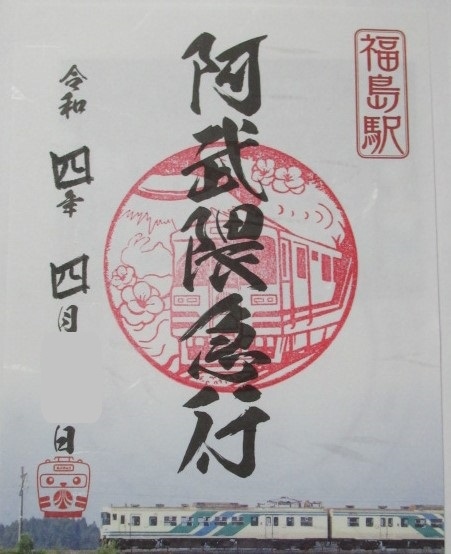 福島駅
阿武隈急行
令和四年四月 日